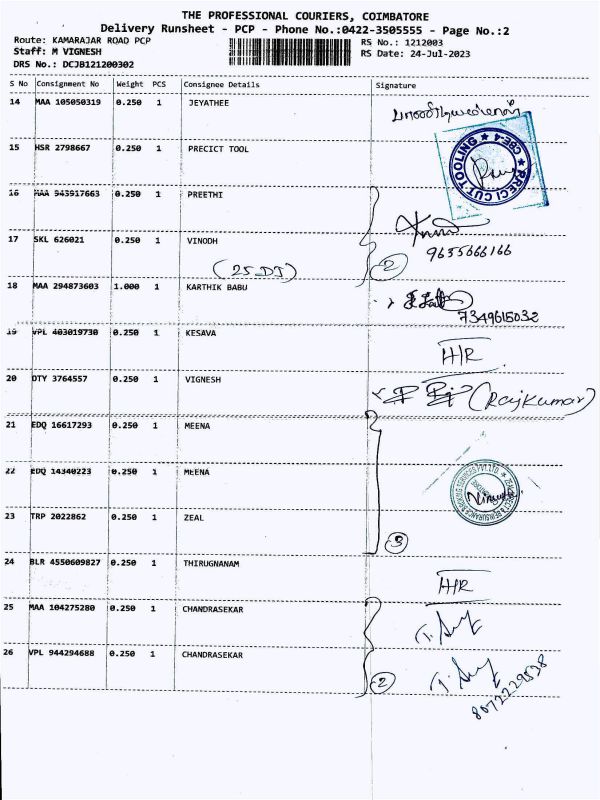 THE PROFESSIONAL COURIERS, COIMBATORE
Delivery Runsheet - PCP - Phone No.:0422-3505555 - Page No.:2
Route: KAMARAJAR ROAD PCP
RS No.: 1212003
Staff: M VIGNESH
RS Date: 24-Jul-2023
DRS No.: DCJB121200302
S No Consignment No Weight PCS Consignee Details Signature
14 MAA 105050319 0.250 1 JEYATHEE
15 HSR 2798667 0.250 1 PRECICT TOOL
PRECI CUT TOOLING ★ CBE-4 ★
16 MAA 943917663 0.250 1 PREETHI
17 SKL 626021 0.250 1 VINODH
9655666166
(25 DJ) 2
18 MAA 294873603 1.000 1 KARTHIK BABU
7349615032
19 VPL 403019730 0.250 1 KESAVA
H/R
20 DTY 3764557 0.250 1 VIGNESH
(Rajkumar)
21 EDQ 16617293 0.250 1 MEENA
22 EDQ 14340223 0.250 1 MEENA
23 TRP 2022862 0.250 1 ZEAL
3
24 BLR 4550609827 0.250 1 THIRUGNANAM
H/R
25 MAA 104275280 0.250 1 CHANDRASEKAR
26 VPL 944294688 0.250 1 CHANDRASEKAR
2
8072229538